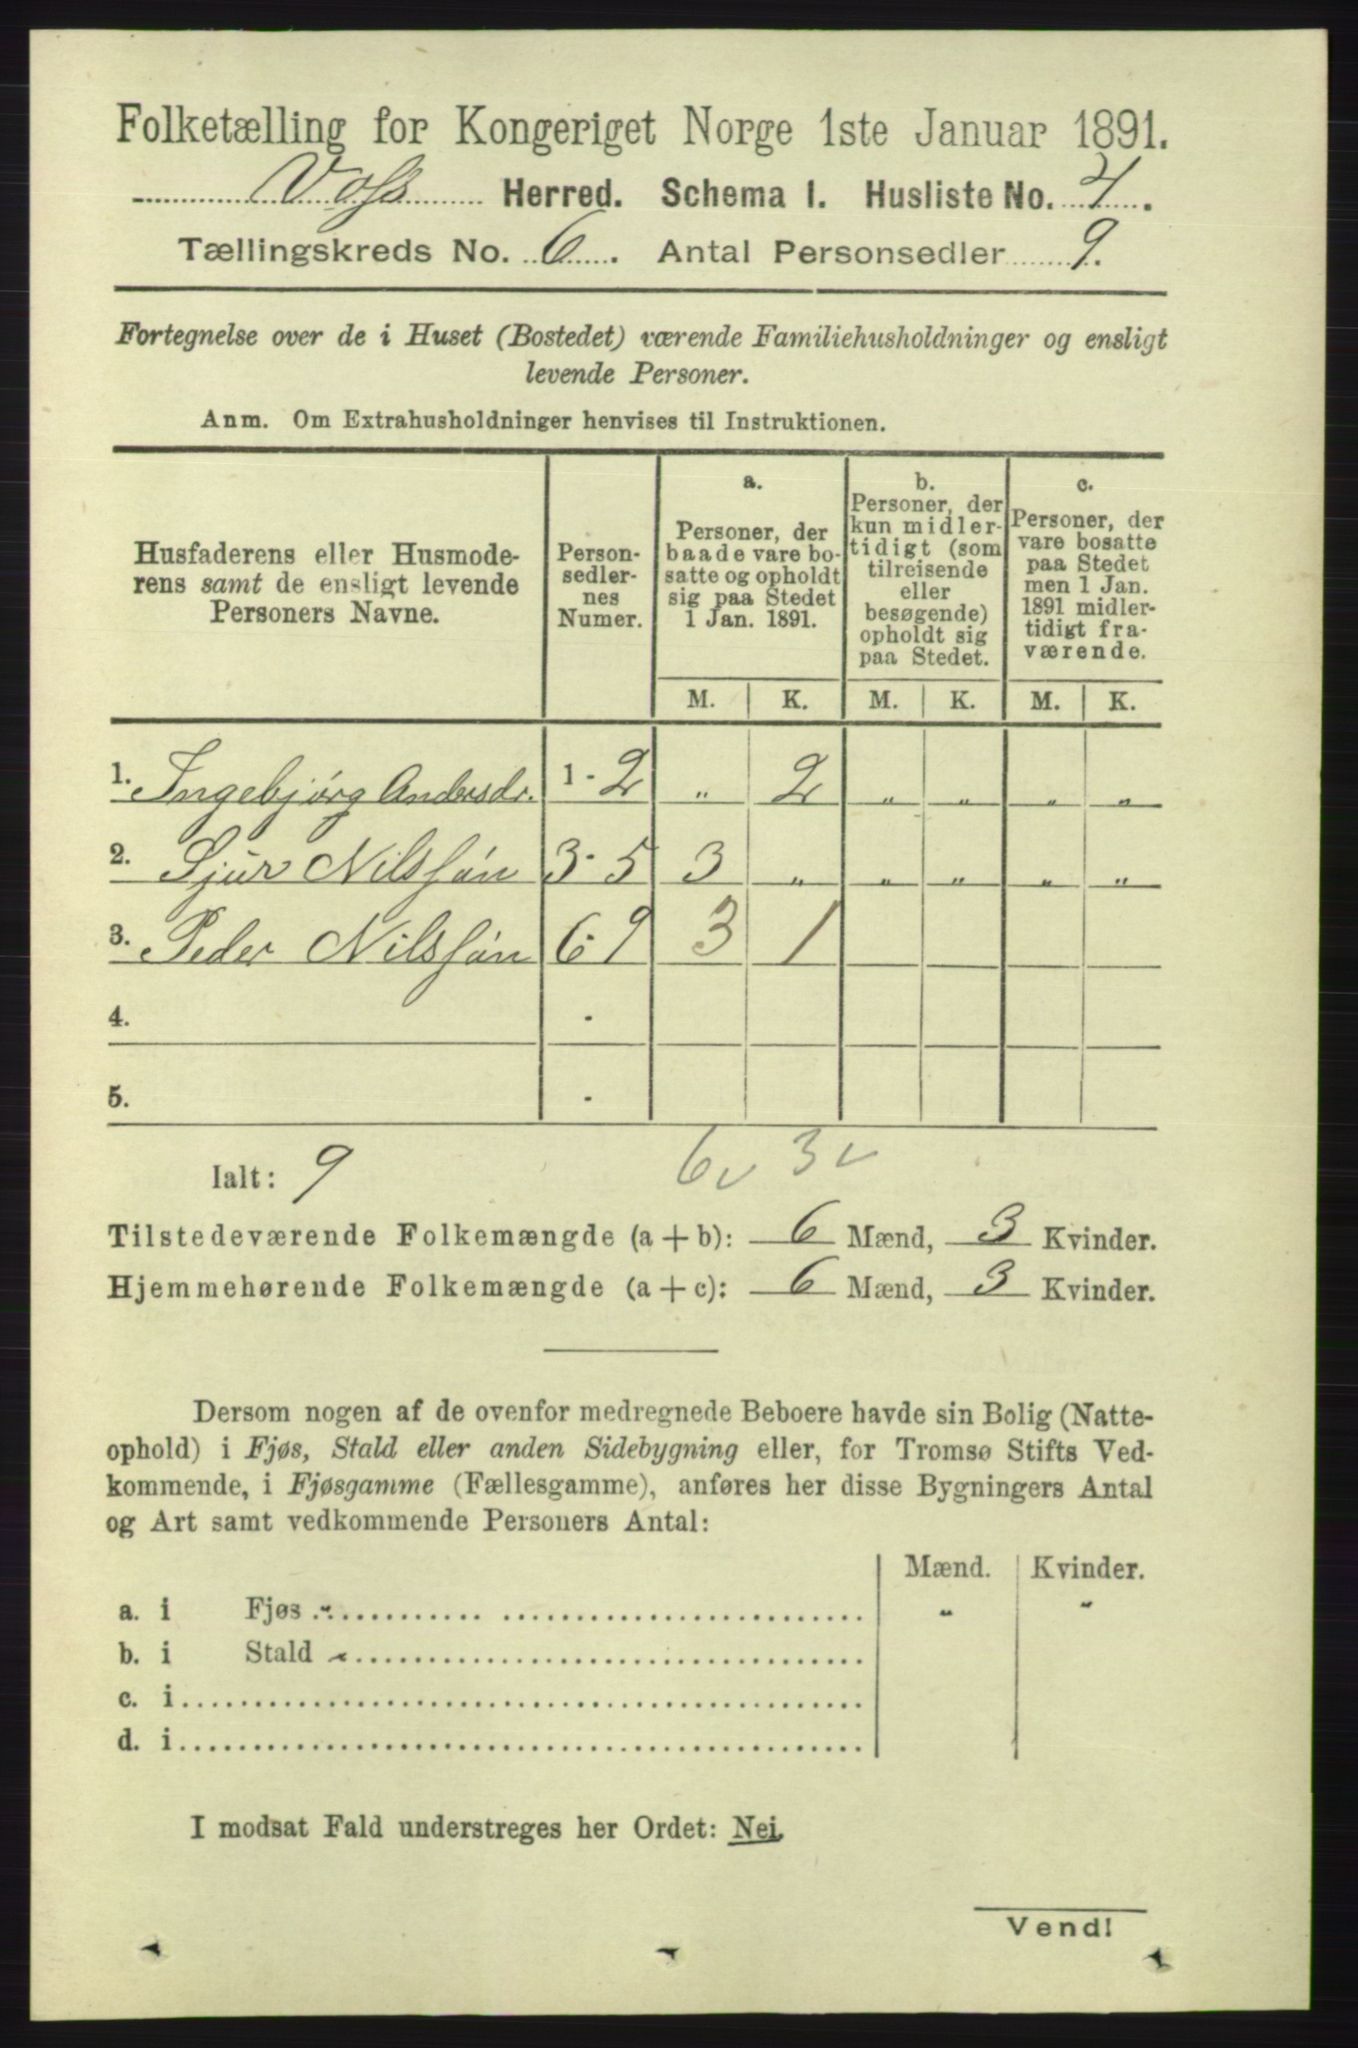 Folketælling for Kongeriget Norge 1ste Januar 1891.
Voss Herred. Schema I. Husliste No. 4.
Tællingskreds No. 6. Antal Personsedler 9.
Fortegnelse over de i Huset (Bostedet) værende Familiehusholdninger og ensligt
levende Personer.
Anm. Om Extrahusholdninger henvises til Instruktionen.
Husfaderens eller Husmode-
rens samt de ensligt levende
Personers Navne.
Person-
sedler-
nes
Numer.
a.
Personer, der
baade vare bo-
satte og opholdt
sig paa Stedet
1 Jan. 1891.
b.
Personer, der
kun midler-
tidigt (som
tilreisende
eller
besøgende)
opholdt sig
paa Stedet.
c.
Personer, der
vare bosatte
paa Stedet
men 1 Jan.
1891 midler-
tidigt fra-
værende.
M. K. M. K. M. K.
1. Ingebjørg Andersdr. 1 - 2 „ 2 „ „ „ „
2. Sjur Nilssøn 3 - 5 3 „ „ „ „ „
3. Peder Nilssøn 6 - 9 3 1
4. -
5. -
Ialt: 9 6 v 3 v
Tilstedeværende Folkemængde (a + b): 6 Mænd, 3 Kvinder.
Hjemmehørende Folkemængde (a + c): 6 Mænd, 3 Kvinder.
Dersom nogen af de ovenfor medregnede Beboere havde sin Bolig (Natte-
ophold) i Fjøs, Stald eller anden Sidebygning eller, for Tromsø Stifts Ved-
kommende, i Fjøsgamme (Fællesgamme), anføres her disse Bygningers Antal
og Art samt vedkommende Personers Antal:
Mænd. Kvinder.
a. i Fjøs „ „ „
b. i Stald „
c. i
d. i
I modsat Fald understreges her Ordet: Nei.
Vend!